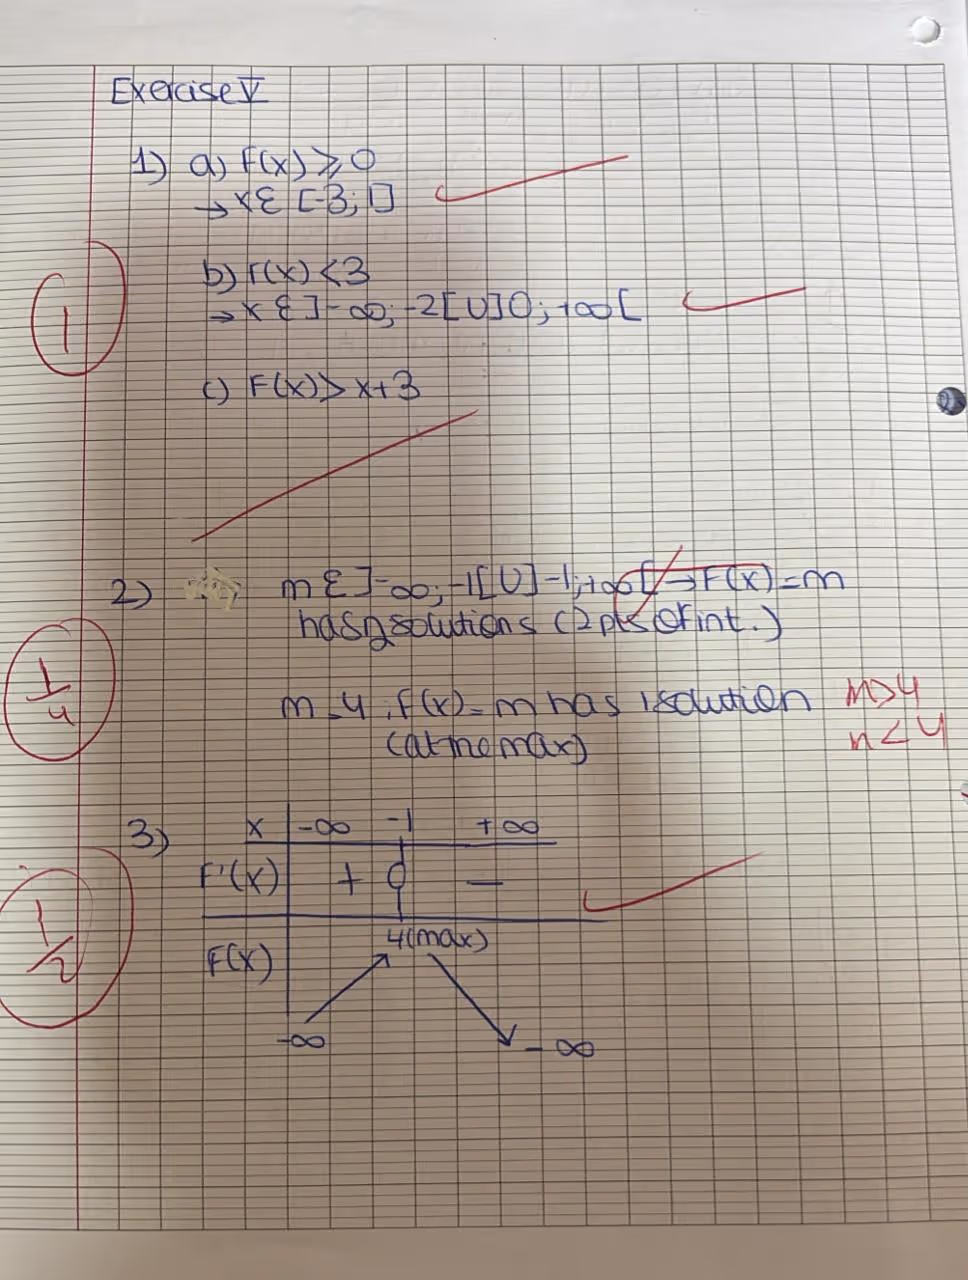 Exercise V
1) a) F(x) ⩾ 0
→ x ε [-3; 1]
b) F(x) < 3
→ x ε ]-∞; -2[ U ]0; +∞[
1
c) F(x) > x+3
2) m ε ]-∞; -1[ U ]-1; +∞[ → F(x) = m
has 2 solutions (2 pts of int.)
1/4
m = 4, F(x) = m has 1 solution m>4
(at the max) n<4
3) x -∞ -1 +∞
F'(x) + 0 -
1/2
4(max)
F(x)
-∞ -∞